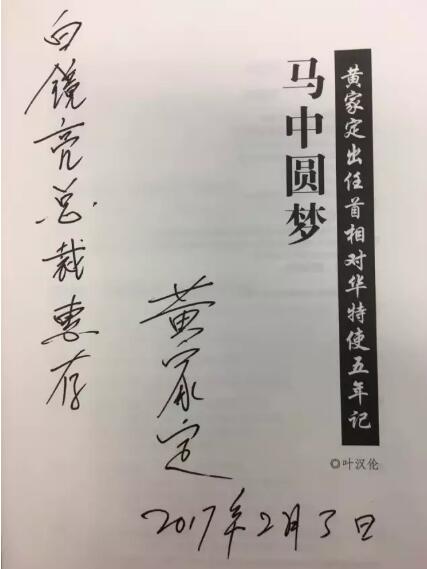 黄家定出任首相对华特使五年记
马中圆梦
◎叶汉伦
白镜亮总裁惠存
黄家定
2017年2月3日